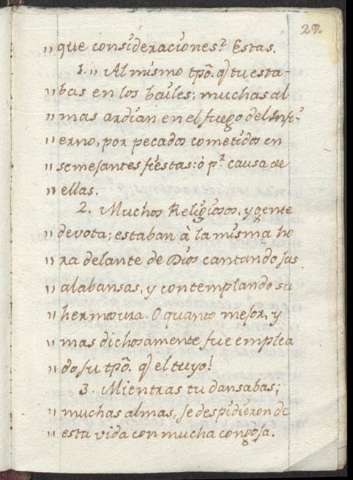 28.
" que consideraciones? Estas.
1. " Al mismo tpõ. q̃ tu esta-
" bas en los bailes; muchas al
" mas ardian en el fuego del Infi-
" erno, por pecados cometidos en
" semejantes fiestas: ò pr. causa de
" ellas.
2. Muchos Religiosos, y gente
" devota; estaban à la misma ho
" ra delante de Dios cantando sus
" alabansas, y contemplando su
" hermosura. O quanto mejor, y
" mas dichosamente fue emplea
" do, su tpõ. q̃ el tuyo!
3. Mientras tu dansabas;
" muchas almas, se despidieron de
" esta vida con mucha congoja.